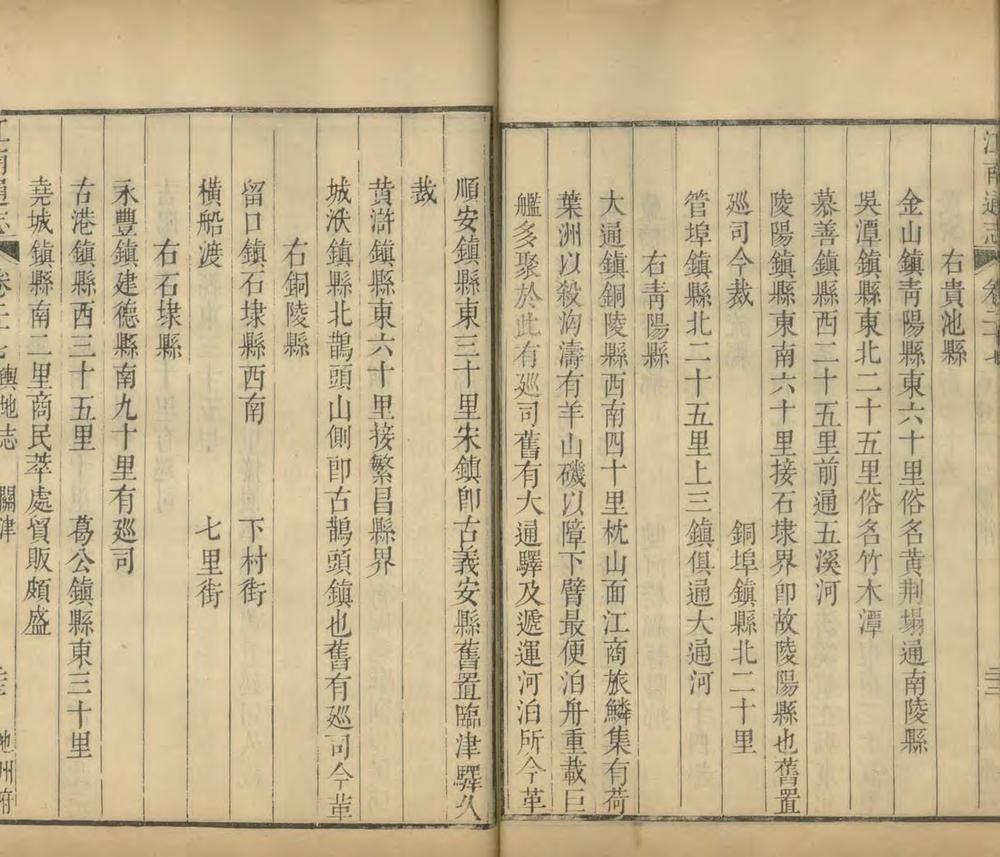 江南通志
右貴池縣
金山鎮青陽縣東六十里俗名黄荆塌通南陵縣
吳潭鎮縣東北二十五里俗名竹木潭
慕善鎮縣西二十五里前通五溪河
陵陽鎮縣東南六十里接石埭界卽故陵陽縣也舊置
廵司今裁 銅埠鎮縣北二十里
管埠鎮縣北二十五里上三鎮俱通大通河
右青陽縣
大通鎮銅陵縣西南四十里枕山面江商旅鱗集有荷
葉洲以殺洶濤有羊山磯以障下臂最便泊舟重載巨
艦多聚於此有廵司舊有大通驛及遞運河泊所今革
順安鎮縣東三十里宋鎮卽古義安縣舊置臨津驛久
裁
黄滸鎮縣東六十里接繁昌縣界
城洑鎮縣北鵲頭山側卽古鵲頭鎮也舊有廵司今革
右銅陵縣
留口鎮石埭縣西南 下村街
橫船渡 七里街
右石埭縣
永豐鎮建德縣南九十里有廵司
古港鎮縣西三十五里 葛公鎮縣東三十里
堯城鎮縣南二里商民萃處貿販頗盛
江南通志 輿地志 關津 池州府